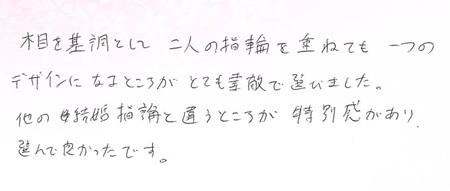 木目を基調として 二人の指輪を重ねても 一つの
デザインになるところが とても素敵で選びました。
他の結婚指輪と違うところが 特別感があり
選んで良かったです。